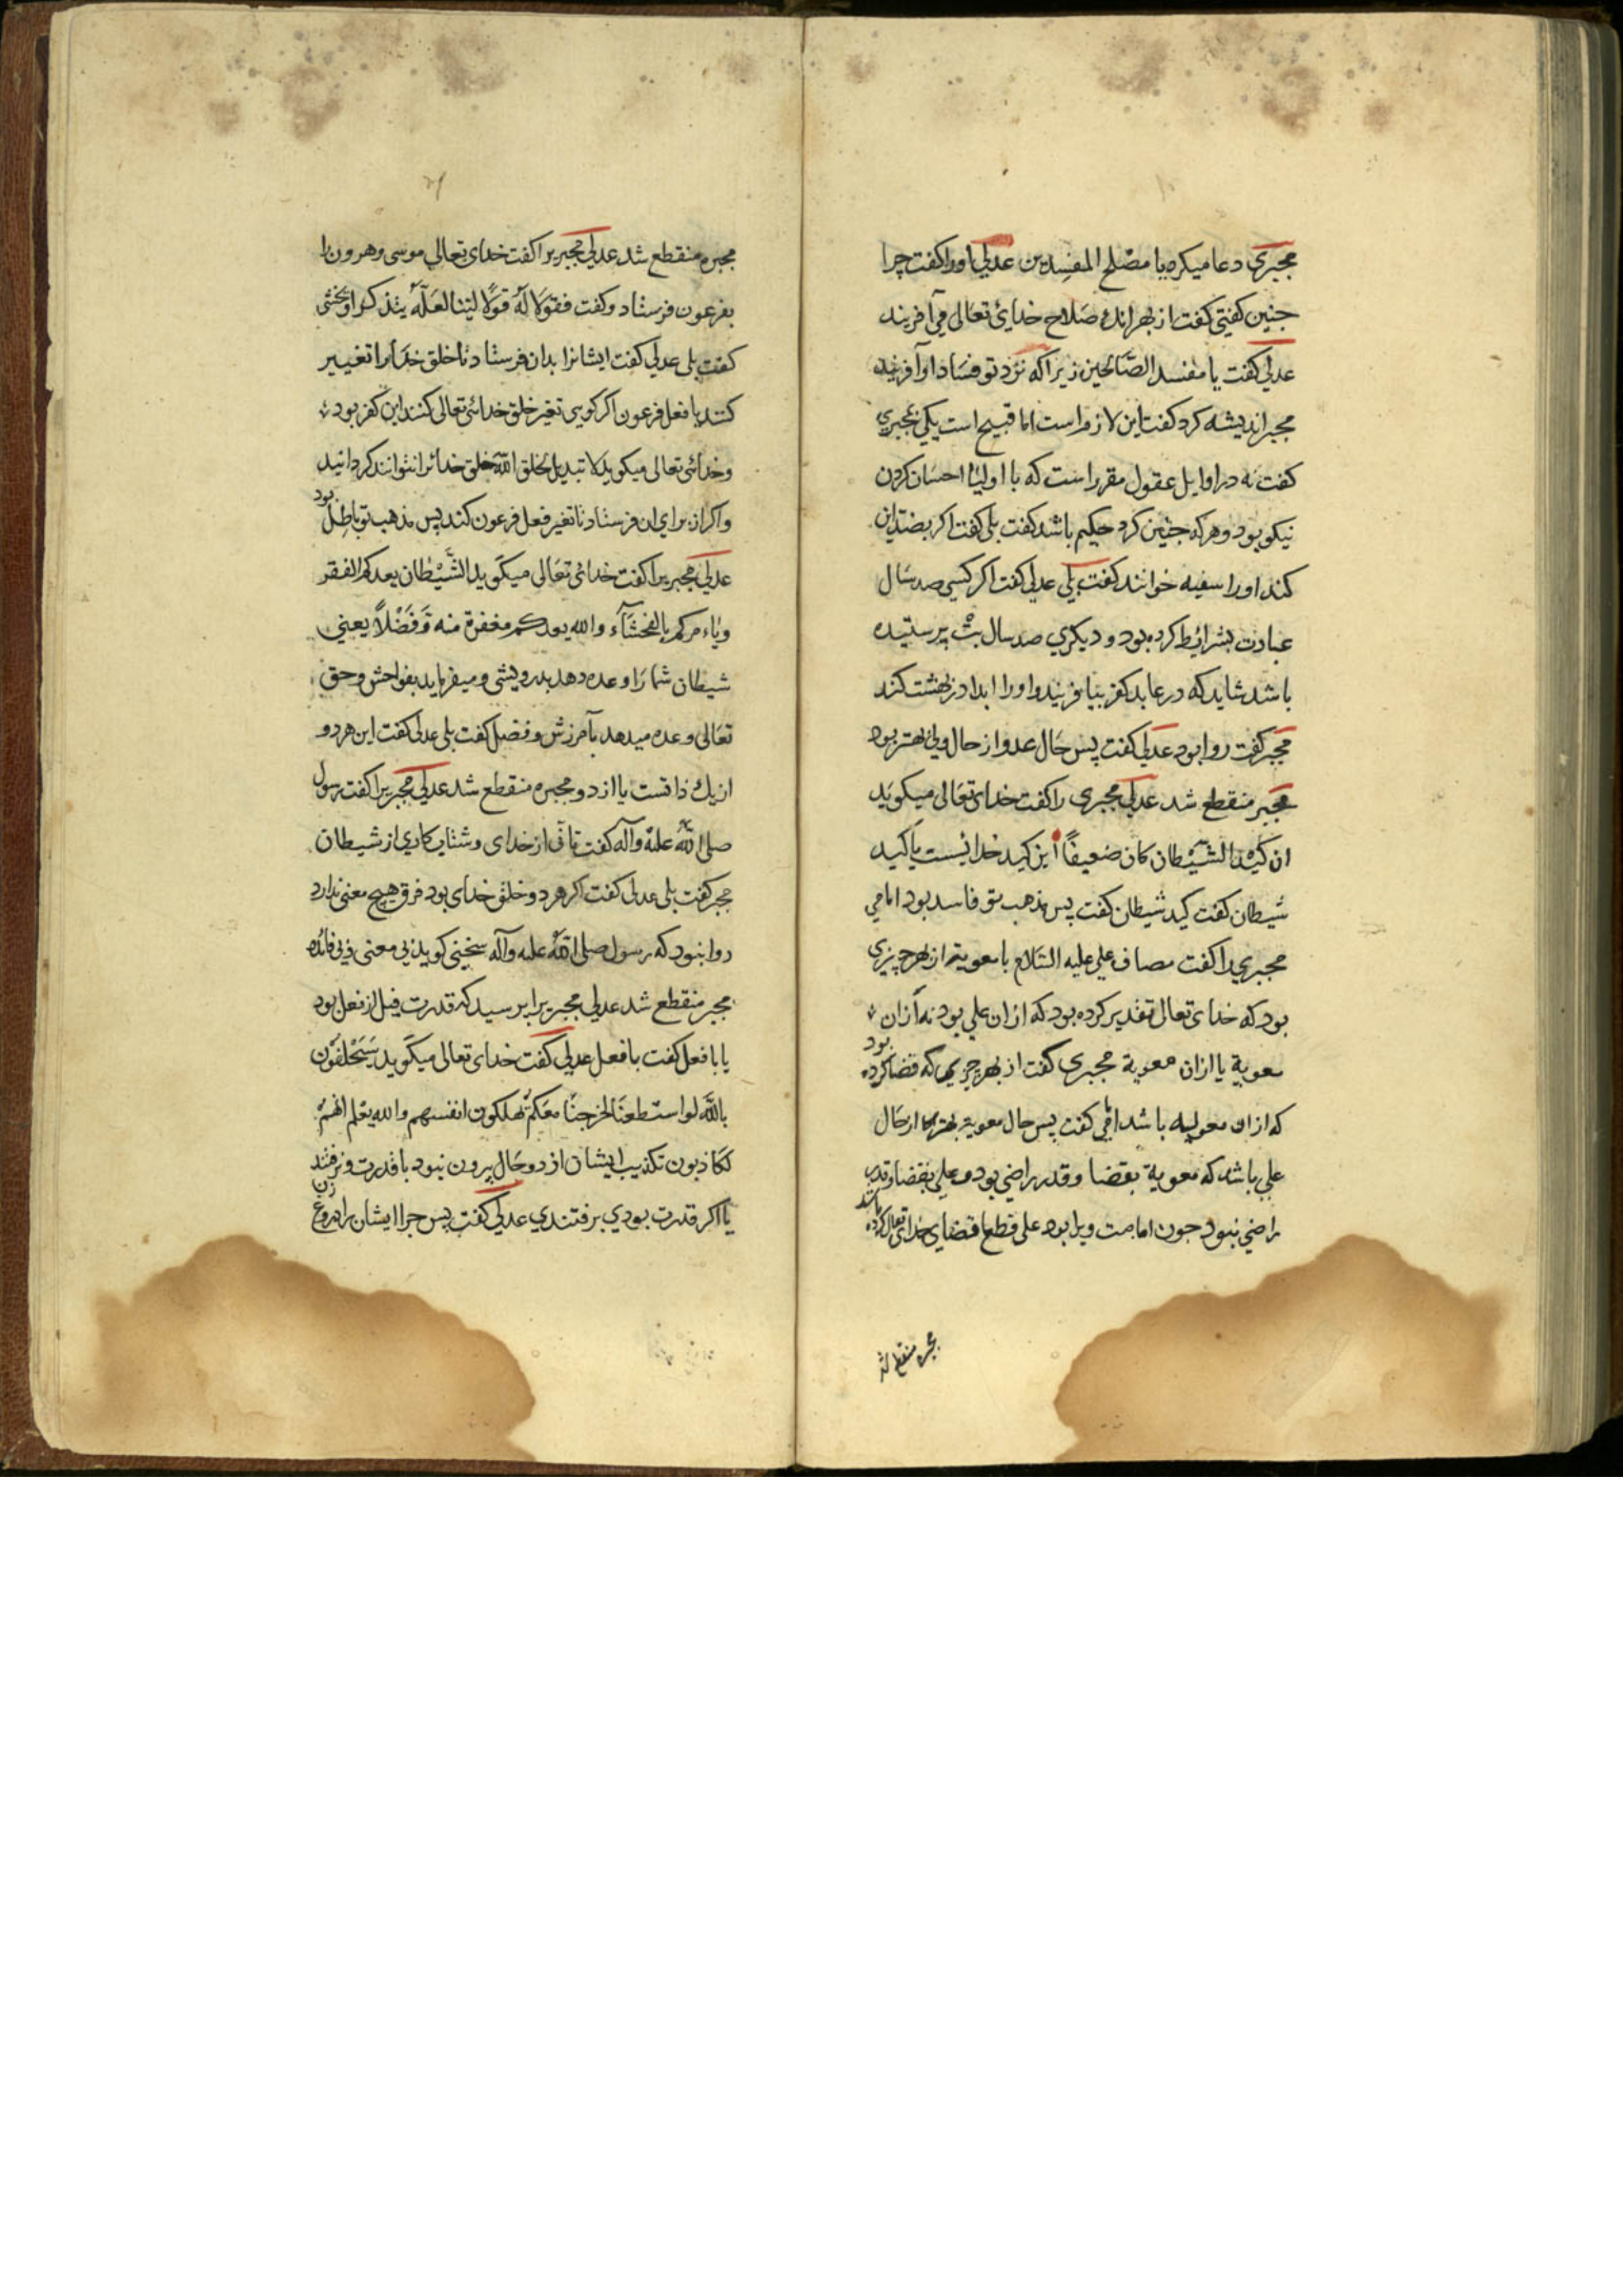 مجبری دعا میکرد یا مصلح المفسدین عدلی اورا کفت چرا
جنین کفتی کفت از بهر انکه صلاح خدای تعالی می آفریند
عدلی کفت یا مفسد الصالحین زیرا که نزد تو فساد او آفریند
مجبر اندیشه کرد کفت این لازم است اما قبیح است یکی مجبری
کفت نه در اوایل عقول مقرر است که با اولیا احسان کردن
نیکو بود و هر که جنین کرد حکیم باشد کفت بلی کفت اکر بضد این
کند اورا سفیه خوانند کفت بلی عدلی کفت اکر کسی صد سال
عبادت بشرایط کرده بود و دیکری صد سال بت پرستیده
باشد شاید که در عابد کفر بیافریند و اورا ابدا در بهشت کند
مجبر کفت روا بود عدلی کفت پس حال عدو از حال ولی بهتر بود
مجبر منقطع شد عدلی مجبری را کفت خدای تعالی میکوید
ان کید الشیطان کان ضعیفا این کید خدائیست یا کید
شیطان کفت کید شیطان کفت پس مذهب تو فاسد بود امامی
مجبری را کفت مصاف علی علیه السلام با معویة از بهر چیزی
بود که خدای تعالی تقدیر کرده بود که از ان علی بود نه از ان
معویة یا از ان معویة مجبری کفت از بهر چیزی که قضا کرده بود
که از ان معویه باشد امامی کفت پس حال معویة بهتر از حال
علی باشد که معویة بقضا و قدر راضی بود و علی بقضا و قدر
راضی نبود جون امامت ویرا بود علی قطع قضای خدای تعالی کرده باشد
مجبره منقطع شد
۲۹
مجبره منقطع شد عدلی مجبریرا کفت خدای تعالی موسی وهرون را
بفرعون فرستاد وکفت فقولا له قولا لینا لعله یتذکر او یخشی
کفت بلی عدلی کفت ایشانرا بدان فرستاد تا خلق خدایرا تغییر
کنند یا فعل فرعون اکر کویی تغیر خلق خدائی تعالی کنند این کفر بود
وخدائی تعالی میکوید لا تبدیل لخلق الله خلق خدائرا نتوانند کردانید
واکر از برای ان فرستاد تا تغیر فعل فرعون کند پس مذهب تو باطل بود
عدلی مجبریرا کفت خدائی تعالی میکوید الشیطان یعدکم الفقر
ویاءمرکم بالفحشآء والله یعدکم مغفرة منه وفضلا یعنی
شیطان شما را وعده دهد بدرویشی ومیفرماید بفواحش وحق
تعالی وعده میدهد بآمرزش وفضل کفت بلی عدلی کفت این هر دو
از یك ذاتست یا از دو مجبره منقطع شد عدلی مجبریرا کفت رسول
صلی الله علیه وآله کفت تانی از خدای وشتاب کاری از شیطان
مجبر کفت بلی عدلی کفت اکر هر دو خلق خدای بود فرق هیچ معنی ندارد
روا نبود که رسول صلی الله علیه وآله سخنی کوید بی معنی و بی فائده
مجبر منقطع شد عدلی مجبریرا پرسید که قدرت قبل از فعل بود
یا با فعل کفت با فعل عدلی کفت خدای تعالی میکوید سیحلفون
بالله لو استطعنا لخرجنا معکم یهلکون انفسهم والله یعلم انهم
لکاذبون تکذیب ایشان از دو حال بیرون نبود با قدرت ونرفتند
یا اکر قدرت بودی برفتندی عدلی کفت پس جرا ایشان را دروغ زن